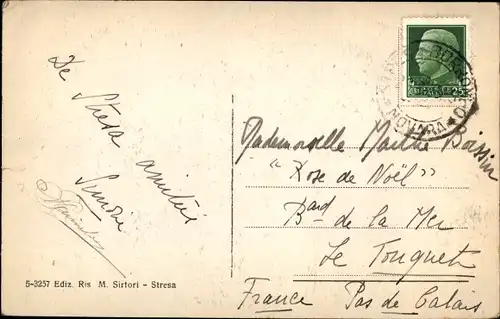 De Stresa
amitiés
Simone
5-3257 Ediz. Ris M. Sirtori - Stresa
25
NOVARA
Mademoiselle Marthe Boissin
"Rose de Noël"
Bard de la Mer
Le Touquet
France Pas de Calais